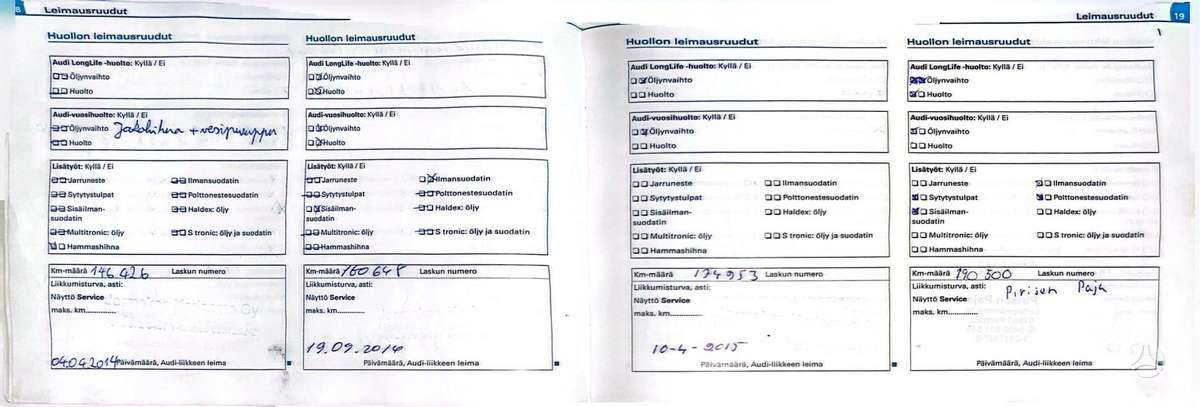 8 Leimausruudut
Huollon leimausruudut
Audi LongLife -huolto: Kyllä / Ei
Öljynvaihto
Huolto
Audi-vuosihuolto: Kyllä / Ei
Öljynvaihto Jakohihna + vesipumppu
Huolto
Lisätyöt: Kyllä / Ei
Jarruneste
Ilmansuodatin
Sytytystulpat
Polttonestesuodatin
Sisäilman-
suodatin
Haldex: öljy
Multitronic: öljy
S tronic: öljy ja suodatin
Hammashihna
Km-määrä 146426 Laskun numero
Liikkumisturva, asti:
Näyttö Service
maks. km.............
04.04.2014 Päivämäärä, Audi-liikkeen leima
Huollon leimausruudut
Audi LongLife -huolto: Kyllä / Ei
Öljynvaihto
Huolto
Audi-vuosihuolto: Kyllä / Ei
Öljynvaihto
Huolto
Lisätyöt: Kyllä / Ei
Jarruneste
Ilmansuodatin
Sytytystulpat
Polttonestesuodatin
Sisäilman-
suodatin
Haldex: öljy
Multitronic: öljy
S tronic: öljy ja suodatin
Hammashihna
Km-määrä 160648 Laskun numero
Liikkumisturva, asti:
Näyttö Service
maks. km.............
19.09.2014
Päivämäärä, Audi-liikkeen leima
Leimausruudut 19
Huollon leimausruudut
Audi LongLife -huolto: Kyllä / Ei
Öljynvaihto
Huolto
Audi-vuosihuolto: Kyllä / Ei
Öljynvaihto
Huolto
Lisätyöt: Kyllä / Ei
Jarruneste
Ilmansuodatin
Sytytystulpat
Polttonestesuodatin
Sisäilman-
suodatin
Haldex: öljy
Multitronic: öljy
S tronic: öljy ja suodatin
Hammashihna
Km-määrä 174953 Laskun numero
Liikkumisturva, asti:
Näyttö Service
maks. km.............
10-4-2015
Päivämäärä, Audi-liikkeen leima
Huollon leimausruudut
Audi LongLife -huolto: Kyllä / Ei
Öljynvaihto
Huolto
Audi-vuosihuolto: Kyllä / Ei
Öljynvaihto
Huolto
Lisätyöt: Kyllä / Ei
Jarruneste
Ilmansuodatin
Sytytystulpat
Polttonestesuodatin
Sisäilman-
suodatin
Haldex: öljy
Multitronic: öljy
S tronic: öljy ja suodatin
Hammashihna
Km-määrä 190 500 Laskun numero
Liikkumisturva, asti: Pirisen Paja
Näyttö Service
maks. km.............
Päivämäärä, Audi-liikkeen leima